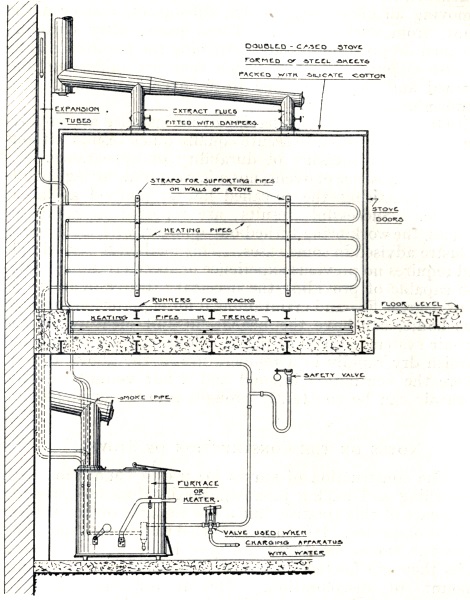 DOUBLED-CASED STOVE
FORMED OF STEEL SHEETS
PACKED WITH SILICATE COTTON.
EXPANSION
TUBES
EXTRACT FLUES
FITTED WITH DAMPERS.
STRAPS FOR SUPPORTING PIPES
ON WALLS OF STOVE
STOVE
DOORS
HEATING PIPES
RUNNERS FOR RACKS
FLOOR LEVEL
HEATING PIPES IN TRENCH.
SAFETY VALVE
SMOKE PIPE.
FURNACE
OR
HEATER.
VALVE USED WHEN
CHARGING APPARATUS
WITH WATER